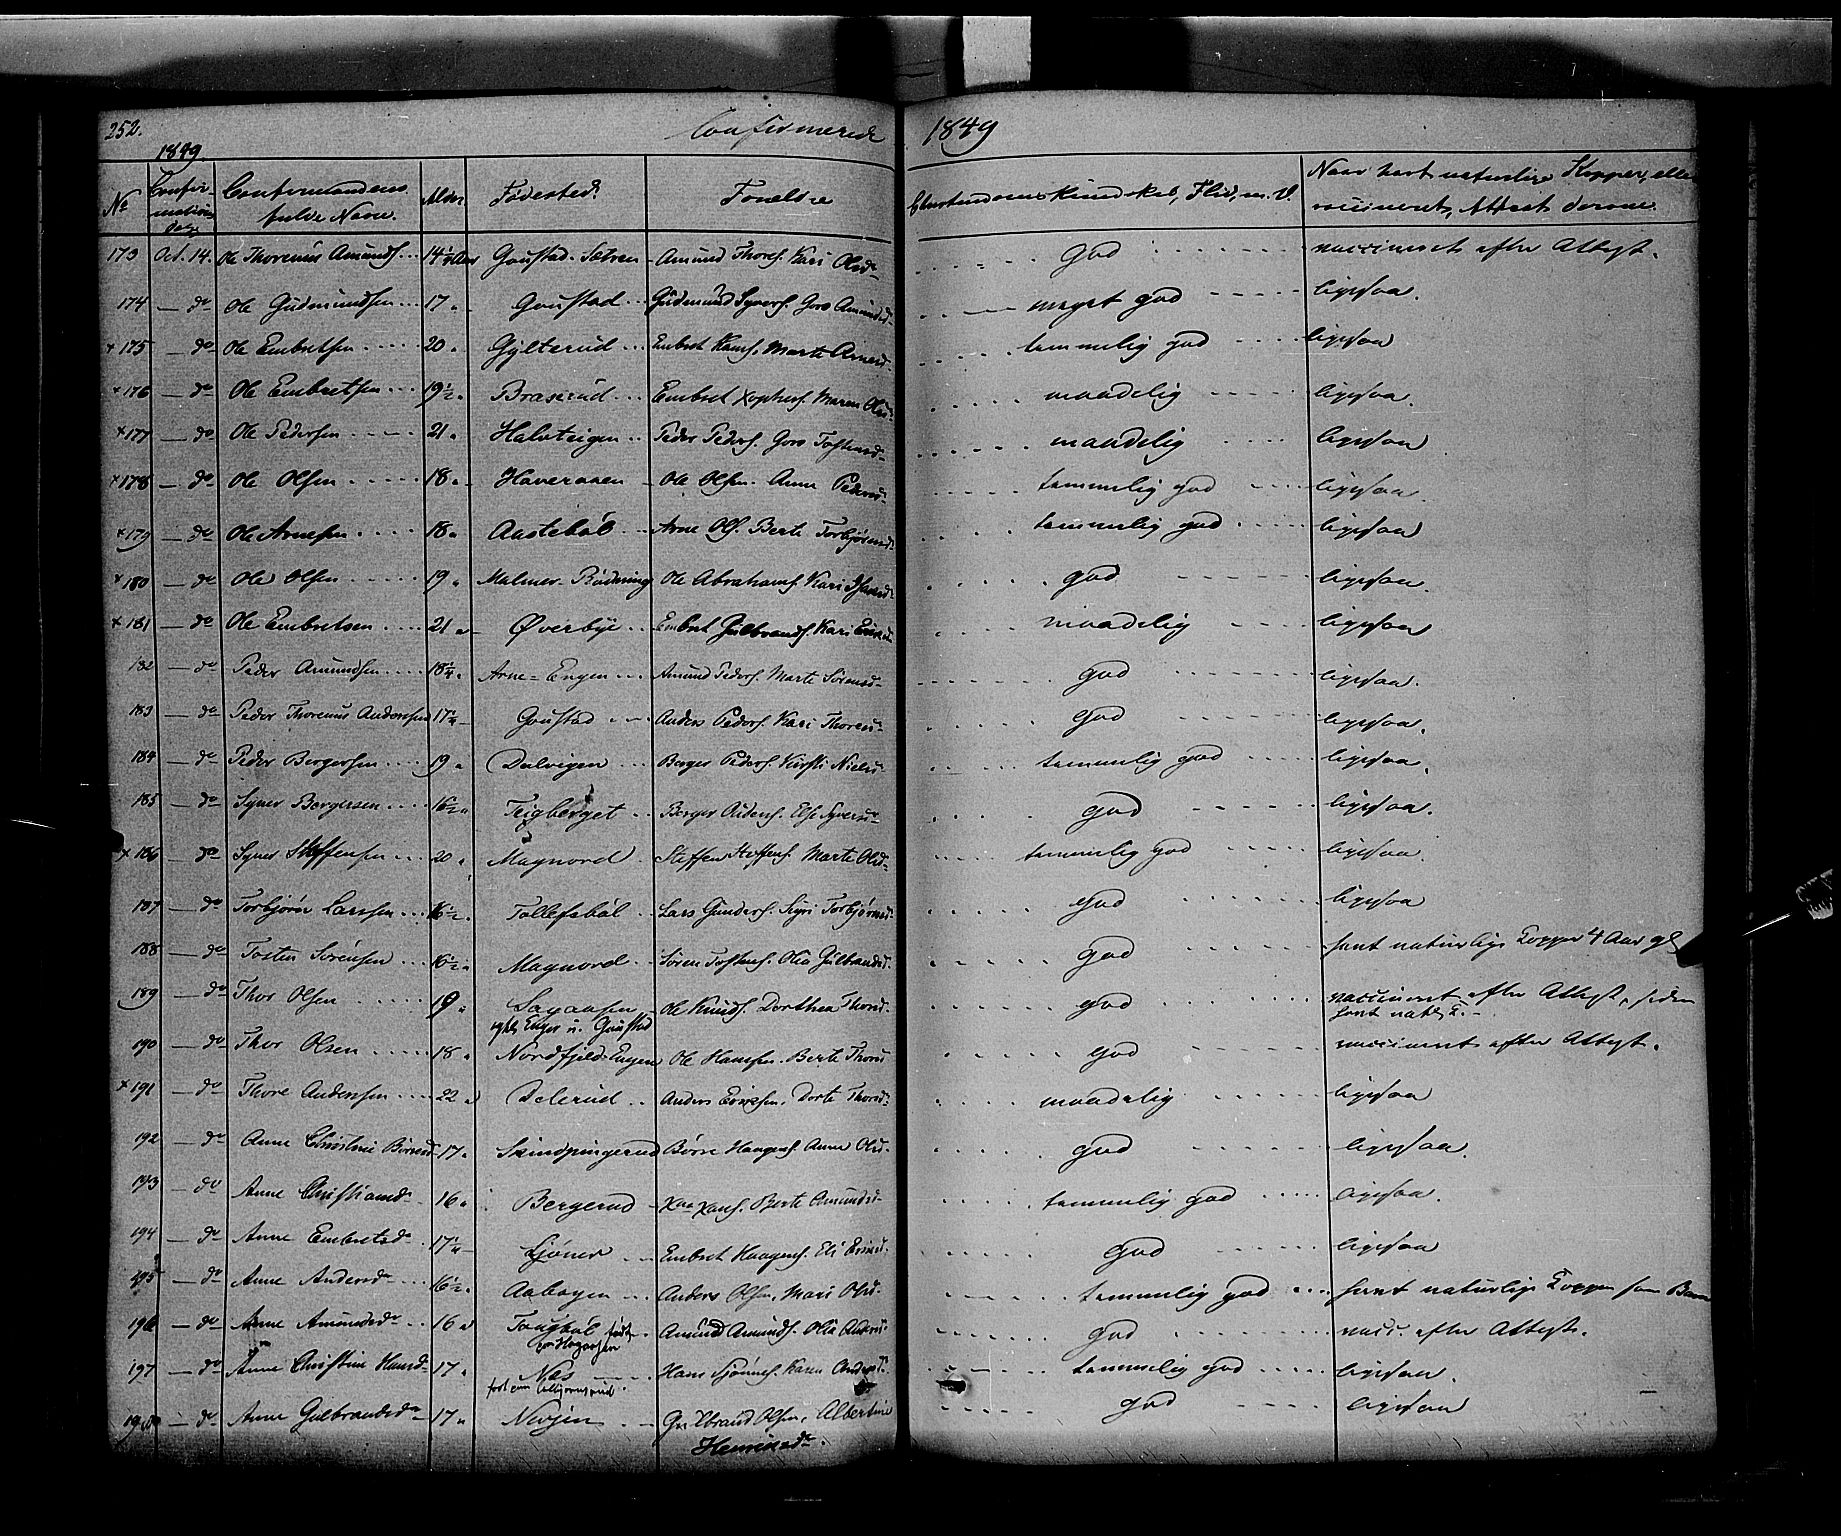 252. Confirmerede 1849
1849.
No Confirmations dag Confirmandens fulde Navn. Alder Fødested. Forældre Christendoms kundskab, Flid, m. V. Naar havt naturlige Kopper, eller vaccineret, Attest derom.
173 Oct. 14. Ole Thorenius Amunds. 14½ Aar Goustad-Sætren Amund Thores. Kari Olsd. god vaccineret efter Attest.
174 — do Ole Gudmundsen 17 " Goustad Gudmund Syvers. Goro Amundsd. meget god ligesaa.
+ 175 — do Ole Embretsen 20 " Gylterud Embret Hans. Marte Arnesd. temmelig god ligesaa
+ 176 — do Ole Embretsen 19½ " Braserud Embret Xophers. Maren Olsd. maadelig ligesaa.
+ 177 — do Ole Pedersen 21 " Halvteigen Peder Peders. Goro Tostensd. maadelig ligesaa
+ 178 — do Ole Olsen 18 " Haveraaen Ole Olsen. Anne Pedersd. temmelig god ligesaa.
+ 179 — do Ole Arnesen 18 " Aastebøl Arne Ols. Berte Torbjørnsd. temmelig god ligesaa
+ 180 — do Ole Olsen 19 " Malmer-Rødning Ole Abrahams. Kari god ligesaa.
+ 181 — do Ole Embretsen 21 " Øverbye Embret Gulbrands. Kari maadelig ligesaa
182 — do Peder Amundsen 18¼ " Arne-Engen Amund Peders. Marte Sørensd. god ligesaa.
183 — do Peder Thorenius Anderssen 17¼ Goustad Anders Peders. Kari Thoresd. god ligesaa.
184 — do Peder Bergersen 19 " Dalvigen Berger Peders. Kirsti Nielsd. temmelig god ligesaa.
185 — do Syver Bergersen 16½ " Teigberget Berger Audens. Else Syversd. god ligesaa.
+ 186 — do Syver Steffensen 20 " Magnord Steffen Steffens. Marte Olsd. temmelig god ligesaa.
187 — do Torbjørn Larssen 16½ " Tollefsbøl Lars Gunders. Sigri Torbjørnsd. god ligesaa
188 — do Tosten Sørensen 16½ " Magnord Søren Tostens. Olia Gulbrandsd. god havt naturlige Kopper 4 Aar gl
189 — do Thor Olsen 19 " Sagaasen Ole Knuds. Dorthea Thorsd. god vaccineret efter Attest, siden havt natl. K.
Enger u. Goustad
190 — do Thor Olsen 18 " Nordfjeld-Engen Ole Hansen. Berte Thorsd. god vaccineret efter Attest.
+ 191 — do Thore Anderssen 22 " Delerud Anders Ericsen. Dorte Thorsd. maadelig ligesaa
192 — do Anne Christine Børresd. 17 " Skindpungerud Børre Haagens. Anne Olsd. god ligesaa.
193 — do Anne Christiansd. 16 " Bergerud Xan Xans. Berte Amundsd. temmelig god ligesaa.
194 — do Anne Embretsd. 17¼ Sjøner Embret Haagens. Eli god ligesaa
195 — do Anne Andersd. 16½ " Aabogen Anders Olsen, Mari Olsd. temmelig god havt naturlige Kopper som Barn
196 — do Anne Amundsd. 16 " Tougbøl Amund Amunds. Olia Andersd. god vacc. efter Attest.
født
197 — do Anne Christine Hansd. 17 " Næs Hans Karen Andersd. temmelig god ligesaa.
født
198 — do Anne Gulbrandsd. 17 " Gulbrand Olsen, Albertine god ligesaa
Henriksd.